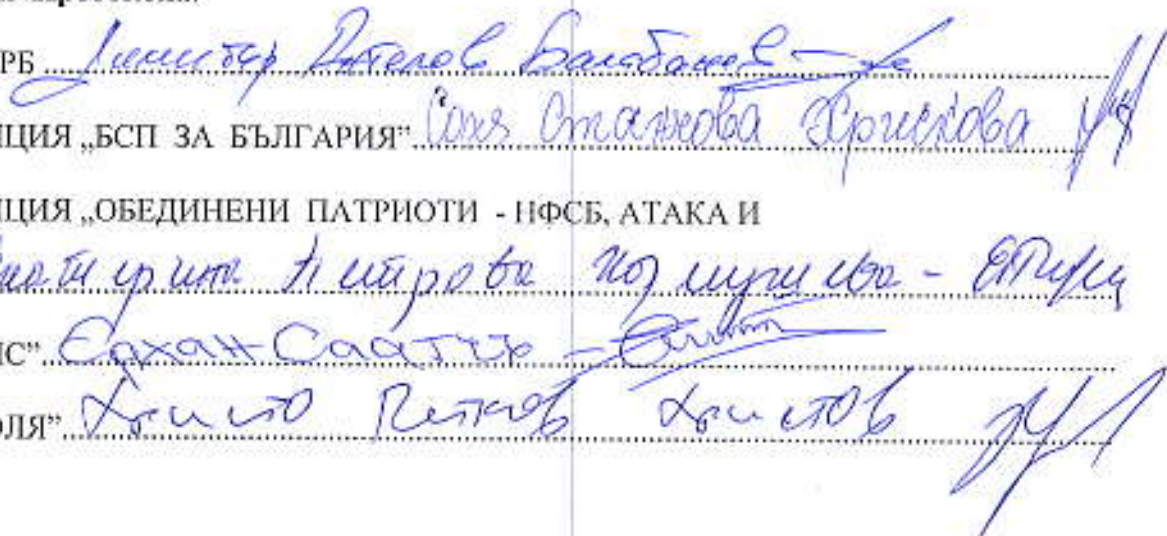 РБ Димитър Ангелов Балабанов
ЦИЯ „БСП ЗА БЪЛГАРИЯ” Соня Станкова Христова
ЦИЯ „ОБЕДИНЕНИ ПАТРИОТИ - НФСБ, АТАКА И
Петрова
ПС” Сахан Саатчъ
ОЛЯ” Христо Петков Христов